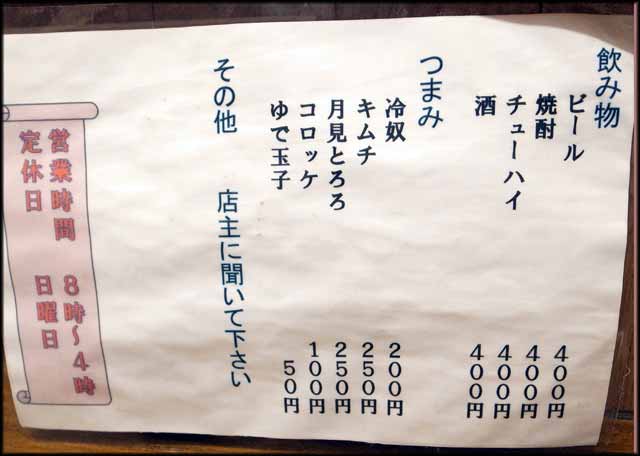 飲み物
ビール 400円
焼酎 400円
チューハイ 400円
酒 400円
つまみ
冷奴 200円
キムチ 250円
月見とろろ 250円
コロッケ 100円
ゆで玉子 50円
その他 店主に聞いて下さい
営業時間 8時~4時
定休日 日曜日